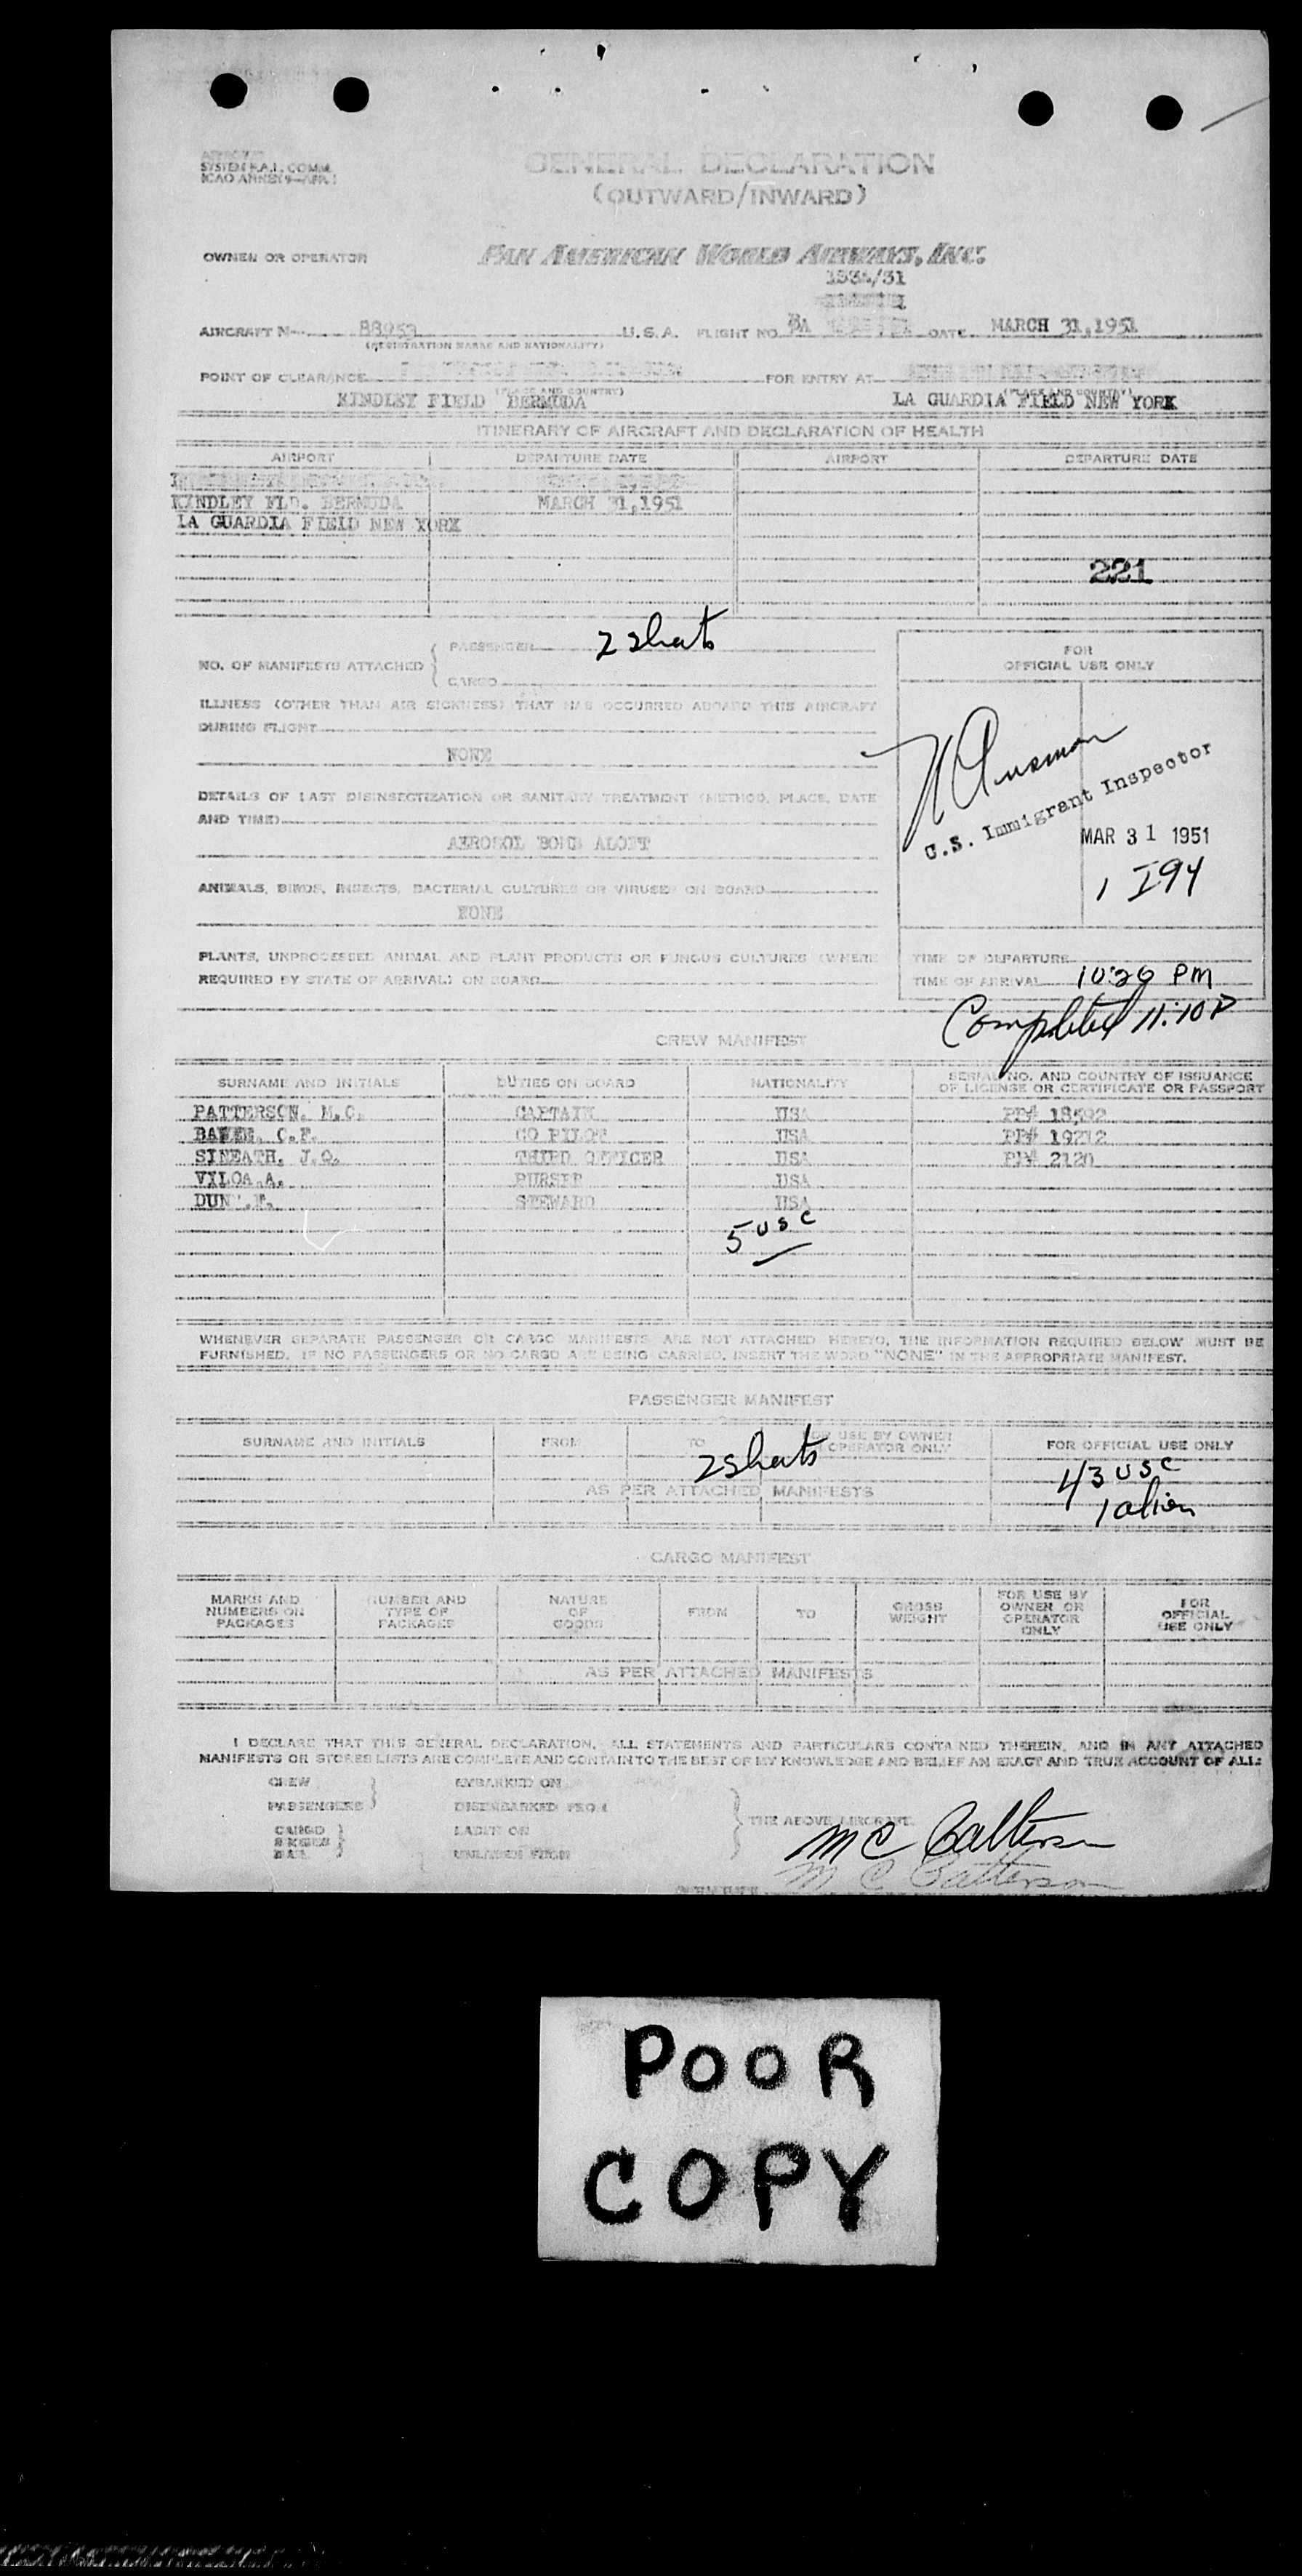 SYSTEM P.A.I. COMM.
GENERAL DECLARATION
(OUTWARD/INWARD)
OWNER OR OPERATOR PAN AMERICAN WORLD AIRWAYS, INC.
AIRCRAFT N- 88953 U.S.A. FLIGHT NO. DATE MARCH 31,1951
(REGISTRATION MARKS AND NATIONALITY)
POINT OF CLEARANCE FOR ENTRY AT
(PLACE AND COUNTRY)
KINDLEY FIELD BERMUDA LA GUARDIA FIELD NEW YORK
ITINERARY OF AIRCRAFT AND DECLARATION OF HEALTH
AIRPORT DEPARTURE DATE AIRPORT DEPARTURE DATE
KINDLEY FLD. BERMUDA MARCH 31,1951
LA GUARDIA FIELD NEW YORK
221
NO. OF MANIFESTS ATTACHED PASSENGER 2 sheets
CARGO
FOR
OFFICIAL USE ONLY
ILLNESS (OTHER THAN AIR SICKNESS) THAT HAS OCCURRED ABOARD THIS AIRCRAFT
DURING FLIGHT
NONE
DETAILS OF LAST DISINSECTIZATION OR SANITARY TREATMENT (METHOD, PLACE, DATE
AND TIME)
AEROSOL BOMB ALOFT
U.S. Immigrant Inspector
MAR 31 1951
1 I94
ANIMALS, BIRDS, INSECTS, BACTERIAL CULTURES OR VIRUSES ON BOARD
NONE
PLANTS, UNPROCESSED ANIMAL AND PLANT PRODUCTS OR FUNGUS CULTURES (WHERE
REQUIRED BY STATE OF ARRIVAL) ON BOARD
TIME OF DEPARTURE
TIME OF ARRIVAL PM
Completed 11:10 P
CREW MANIFEST
SURNAME AND INITIALS DUTIES ON BOARD NATIONALITY SERIAL NO. AND COUNTRY OF ISSUANCE
OF LICENSE OR CERTIFICATE OR PASSPORT
PATTERSON. M.C. CAPTAIN USA PP# 18592
C.F. CO PILOT USA PP# 19212
SINEATH. J.O. THIRD OFFICER USA PP# 2120
VILOA A. PURSER USA
STEWARD USA
5 USC
WHENEVER SEPARATE PASSENGER OR CARGO MANIFESTS ARE NOT ATTACHED HERETO, THE INFORMATION REQUIRED BELOW MUST BE
FURNISHED. IF NO PASSENGERS OR NO CARGO ARE BEING CARRIED, INSERT THE WORD "NONE" IN THE APPROPRIATE MANIFEST.
PASSENGER MANIFEST
SURNAME AND INITIALS FROM TO FOR USE BY OWNER
OR OPERATOR ONLY FOR OFFICIAL USE ONLY
2 sheets 43 USC
AS PER ATTACHED MANIFESTS
1 alien
CARGO MANIFEST
MARKS AND
NUMBERS ON
PACKAGES NUMBER AND
TYPE OF
PACKAGES NATURE
OF
GOODS FROM TO GROSS
WEIGHT FOR USE BY
OWNER OR
OPERATOR
ONLY FOR
OFFICIAL
USE ONLY
AS PER ATTACHED MANIFESTS
I DECLARE THAT THIS GENERAL DECLARATION, ALL STATEMENTS AND PARTICULARS CONTAINED THEREIN, AND IN ANY ATTACHED
MANIFESTS OR STORES LISTS ARE COMPLETE AND CONTAIN TO THE BEST OF MY KNOWLEDGE AND BELIEF AN EXACT AND TRUE ACCOUNT OF ALL:
CREW EMBARKED ON
PASSENGERS DISEMBARKED FROM
THE ABOVE AIRCRAFT.
CARGO LADEN ON
UNLADEN FROM
M C Patterson
M C Patterson
POOR
COPY